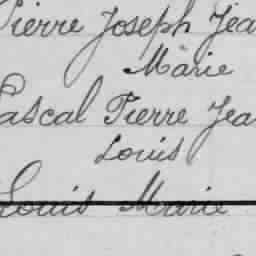 Pierre Joseph Jea
Marie
Pascal Pierre Jea
Louis
Louis Marie